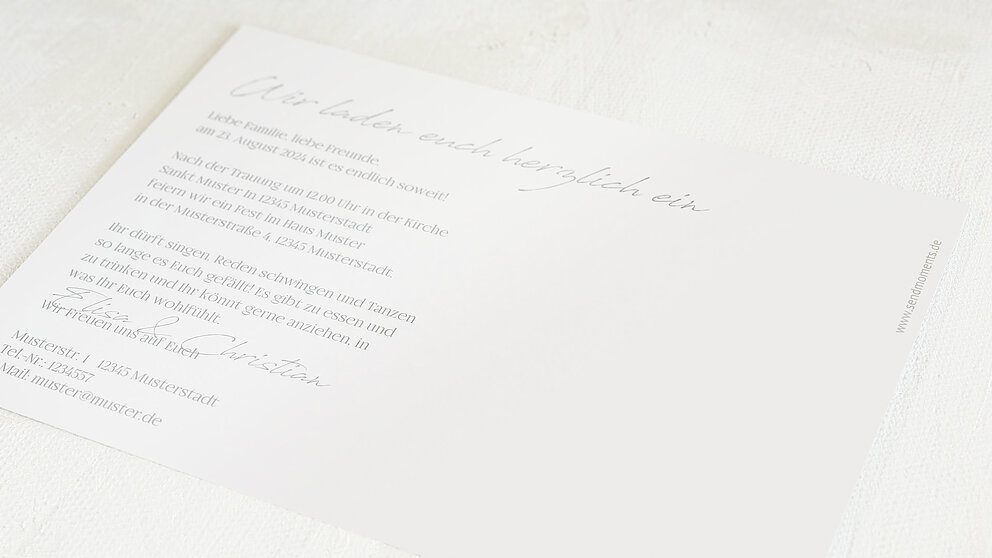 Wir laden euch herzlich ein
Liebe Familie, liebe Freunde,
am 23. August 2024 ist es endlich soweit!
Nach der Trauung um 12.00 Uhr in der Kirche
Sankt Muster In 12345 Musterstadt
feiern wir ein Fest im Haus Muster
in der Musterstraße 4, 12345 Musterstadt.
Ihr dürft singen, Reden schwingen und Tanzen
so lange es Euch gefällt! Es gibt zu essen und
zu trinken und Ihr könnt gerne anziehen, in
was Ihr Euch wohlfühlt.
Wir Freuen uns auf Euch
Elisa & Christian
Musterstr. 1 12345 Musterstadt
Tel.-Nr.: 1234557
Mail: muster@muster.de
www.sendmoments.de